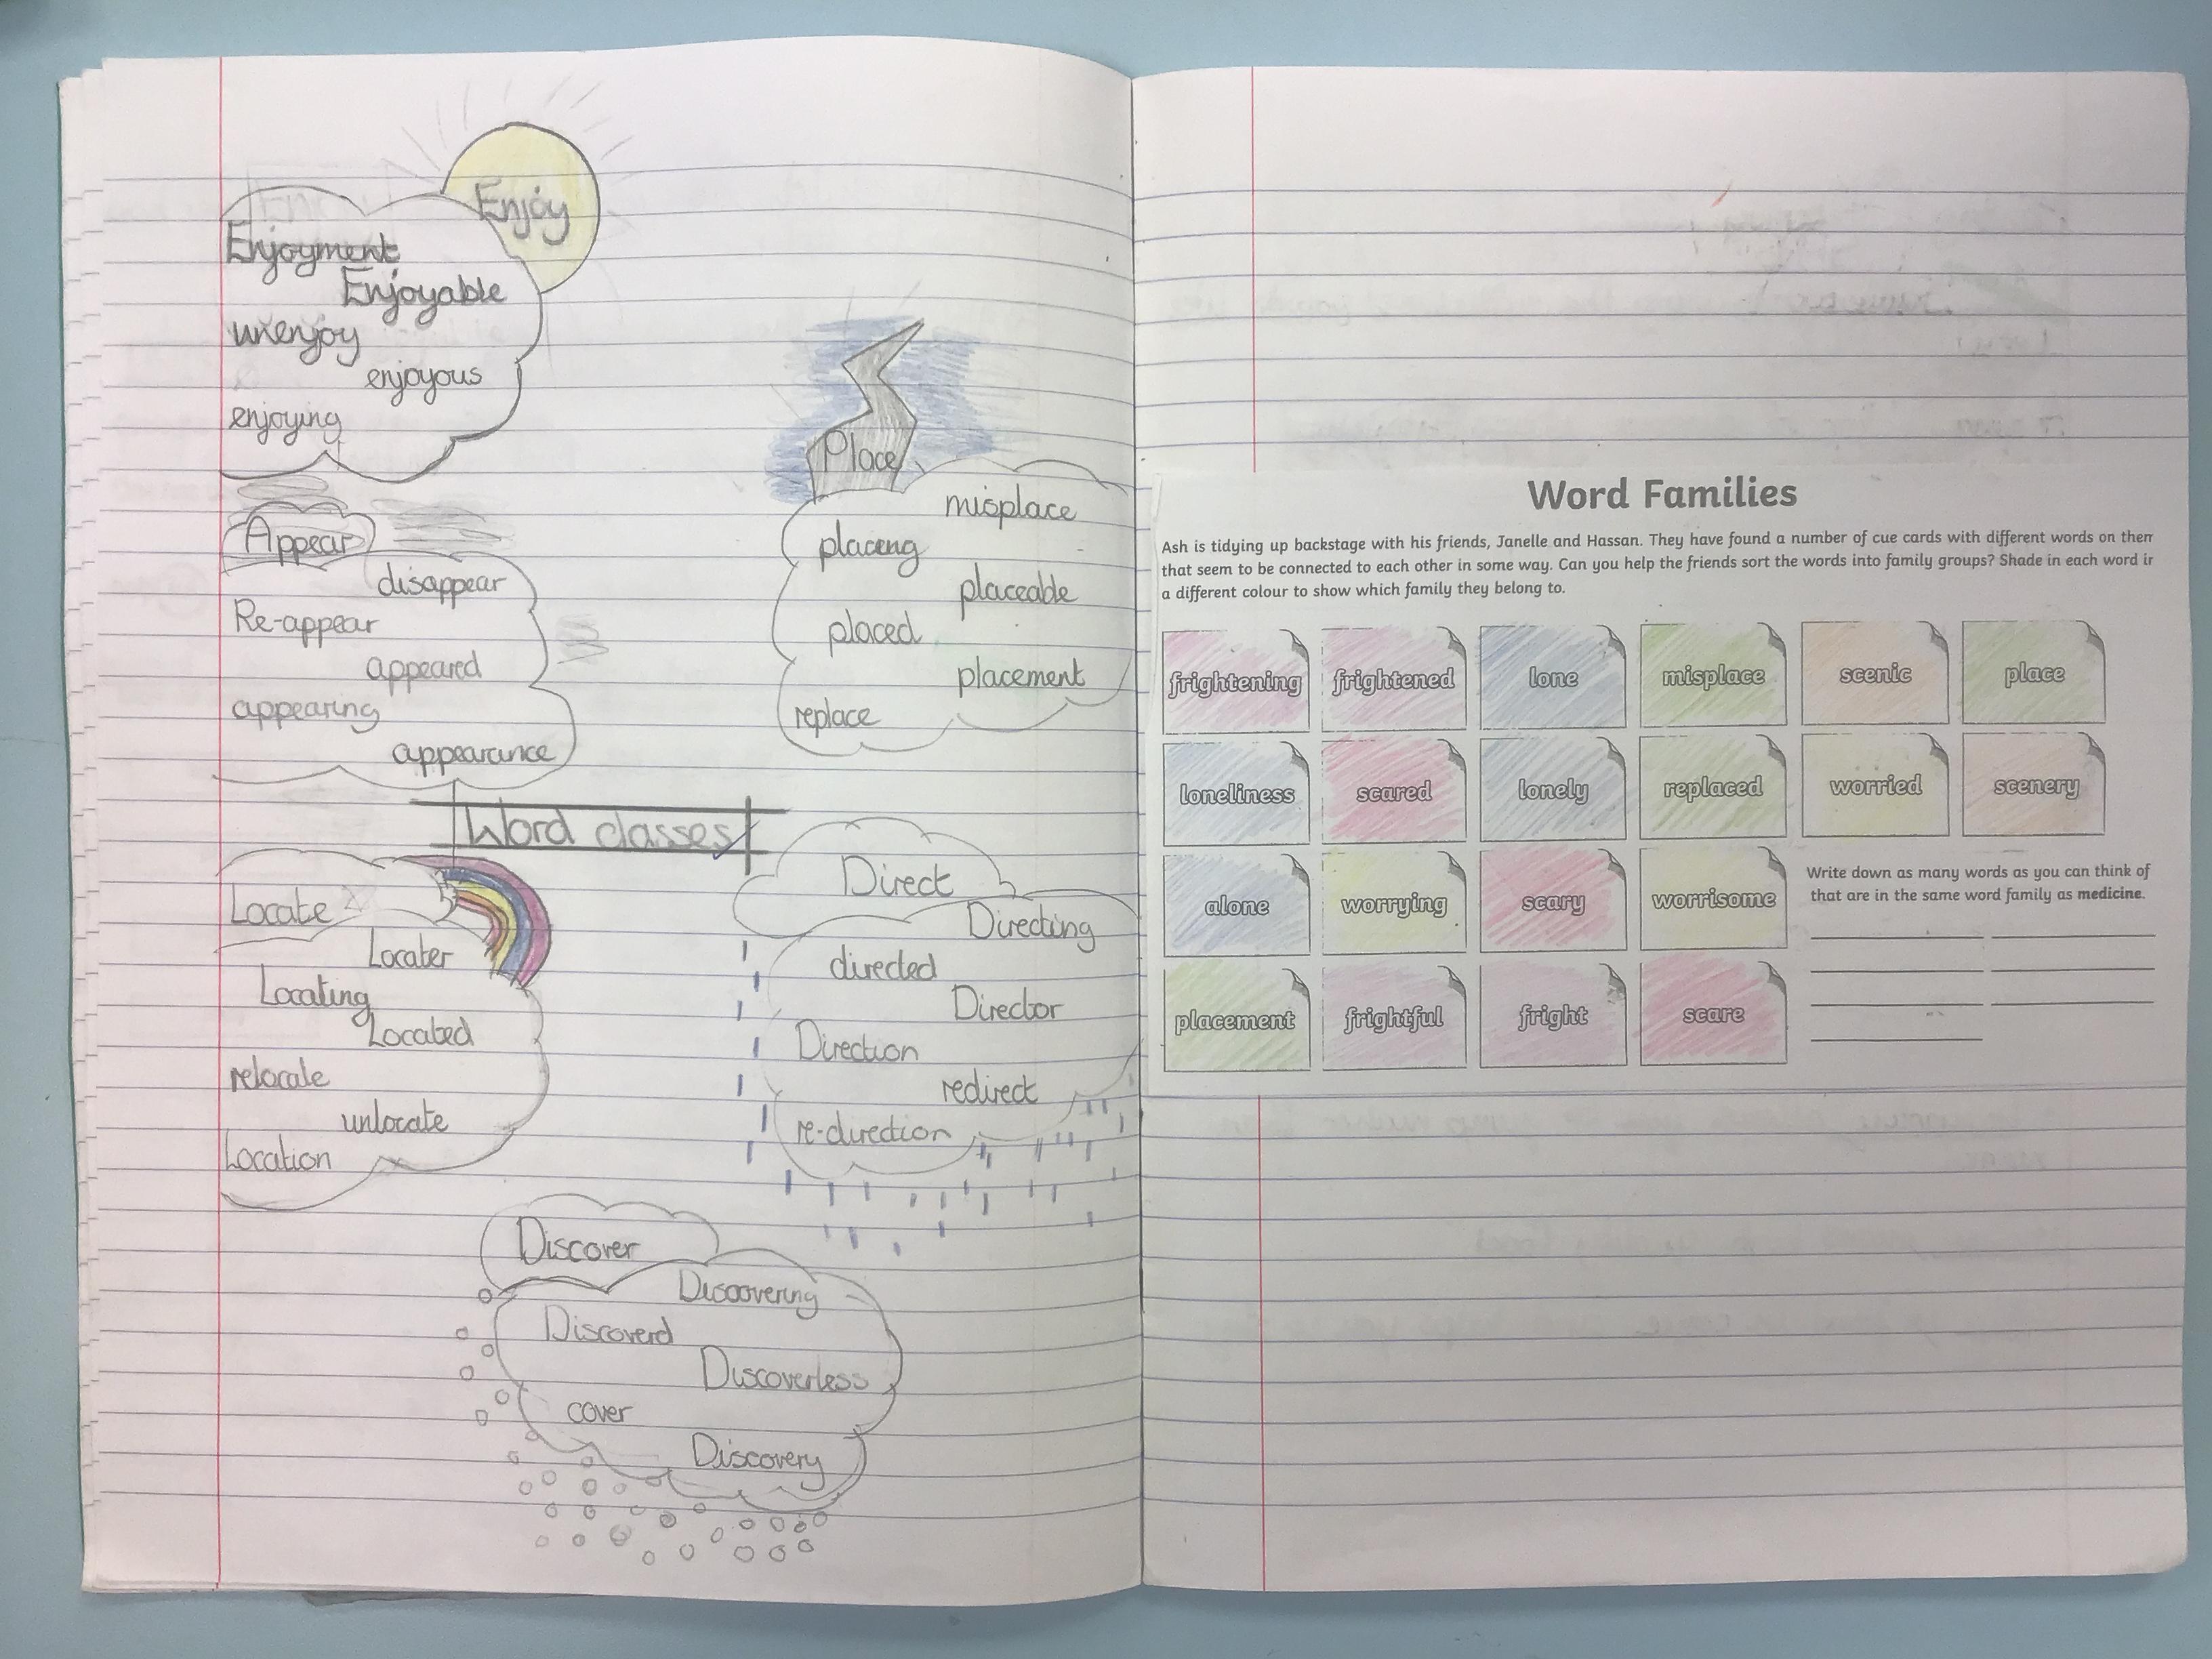 Enjoy
Enjoyment
Enjoyable
unenjoy
enjoyous
enjoying
Appear
disappear
Re-appear
appeared
appearing
appearance
Place
misplace
placeng
placeable
placed
placement
replace
Word classes
Locate
Locater
Locating
Located
relocate
unlocate
Location
Direct
Directing
directed
Director
Direction
redirect
re-direction
Discover
Discovering
Discoverd
Discoverless
cover
Discovery
Word Families
Ash is tidying up backstage with his friends, Janelle and Hassan. They have found a number of cue cards with different words on them
that seem to be connected to each other in some way. Can you help the friends sort the words into family groups? Shade in each word in
a different colour to show which family they belong to.
frightening frightened lone misplace scenic place
loneliness scared lonely replaced worried scenery
alone worrying scary worrisome
placement frightful fright scare
Write down as many words as you can think of
that are in the same word family as medicine.